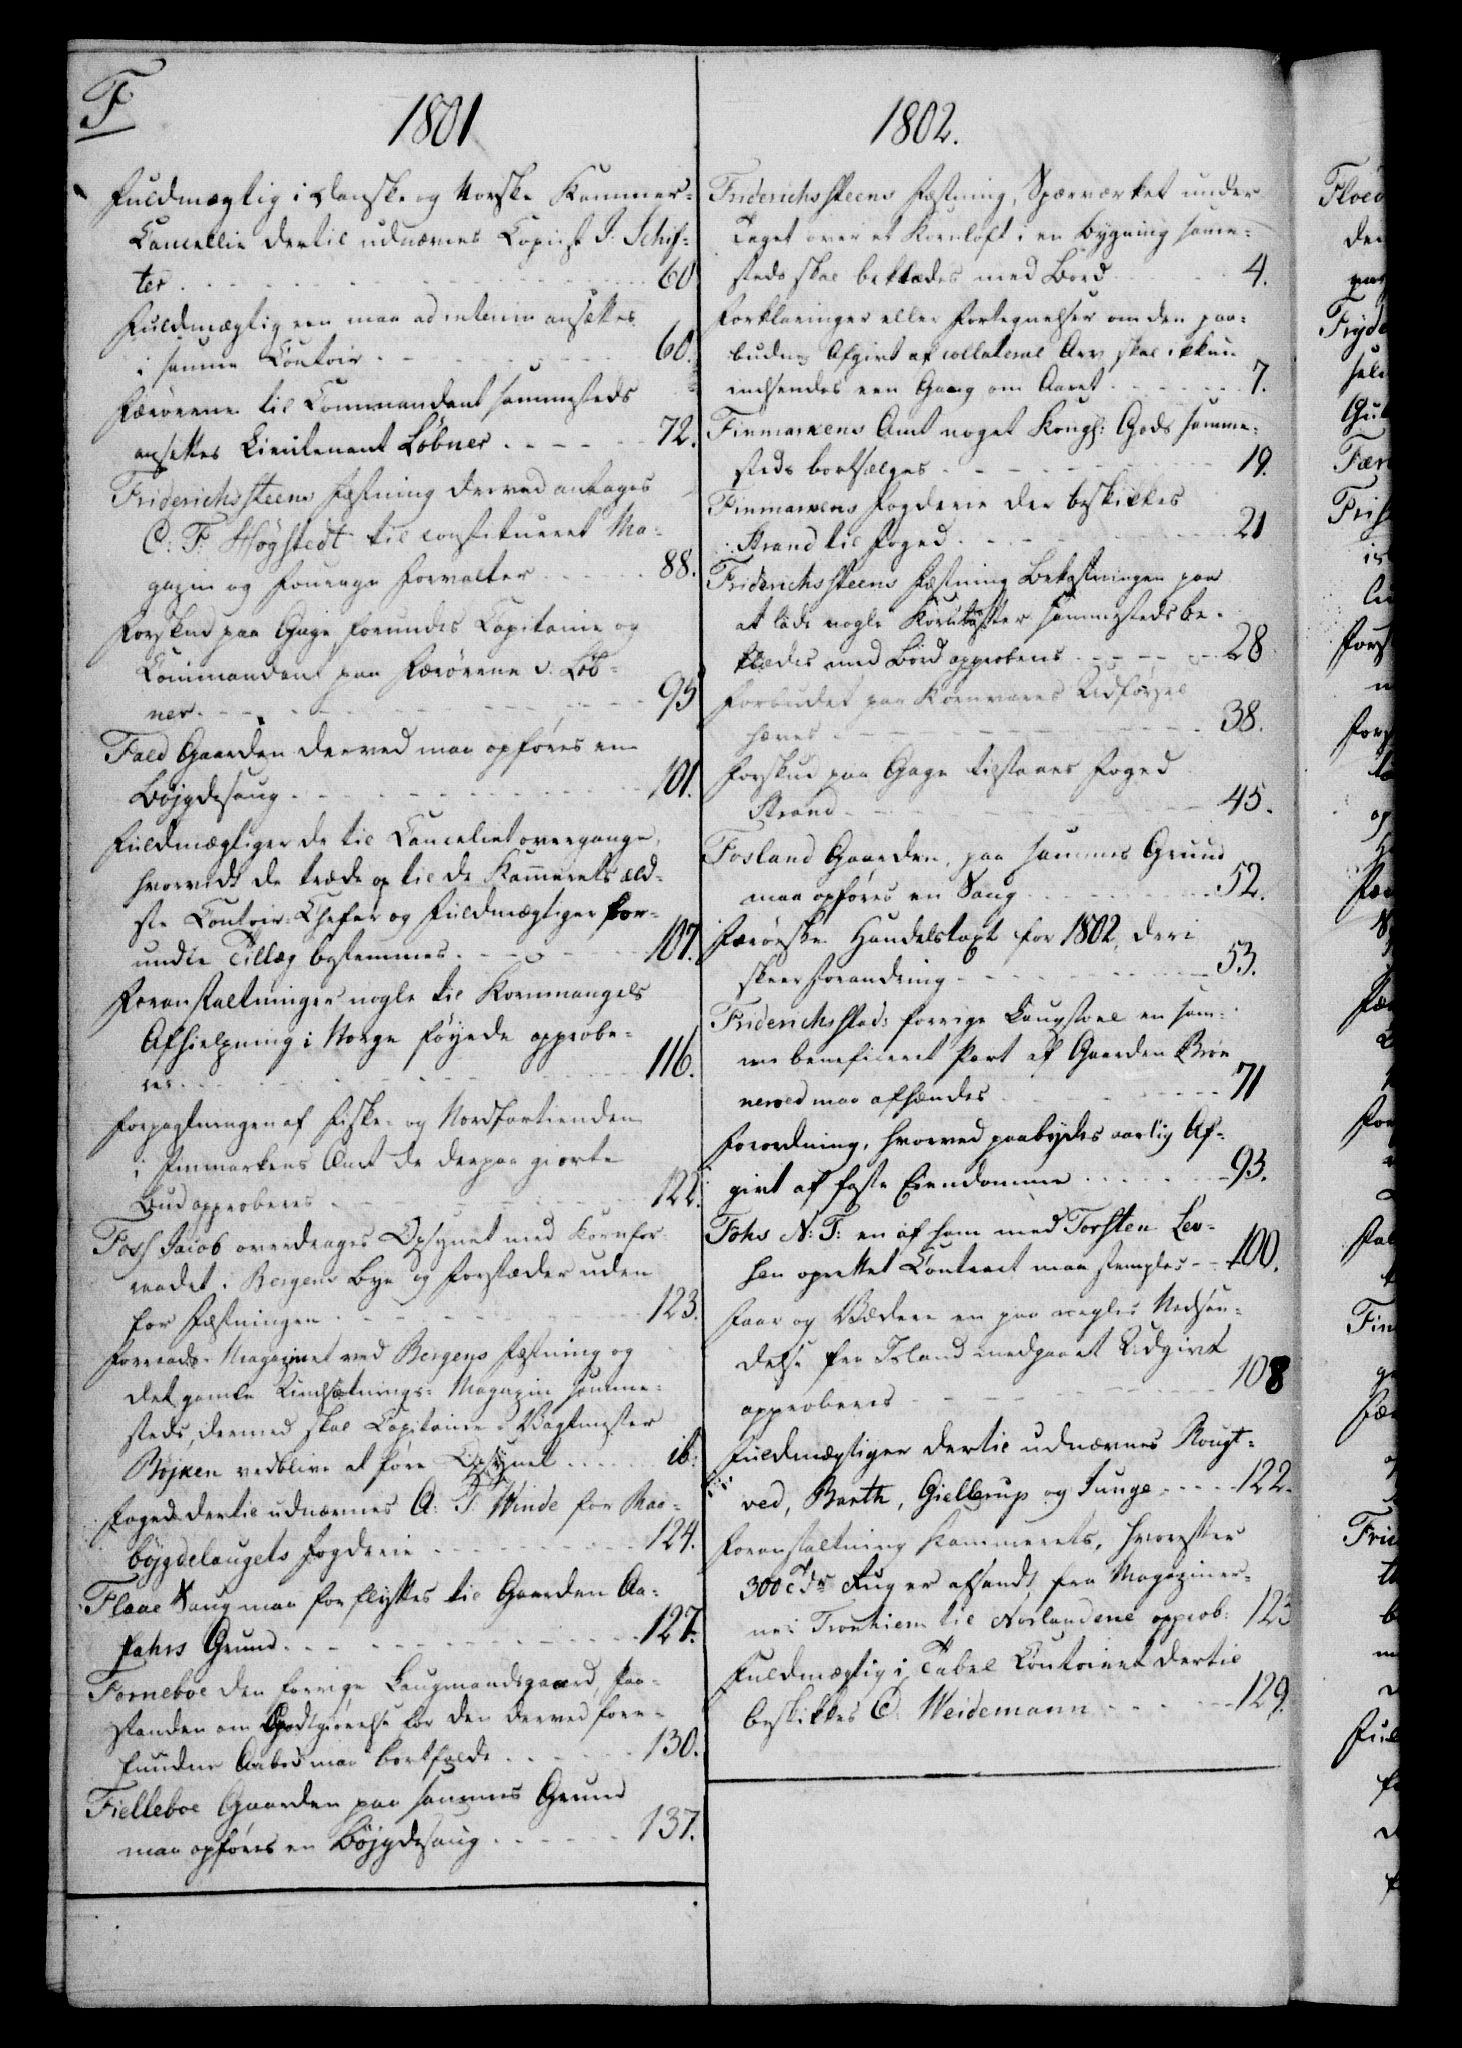 F
1801
Fuldmægtig i Danske og Norske Kammer-
Cancellie dertil udnævnes Copiist J: Schif-
ter 60
Fuldmægtig een maa ad interim ansættes
i samme Contoir 60.
Færøerne til Commandant sammesteds
ansættes Lieutenant Løbner 72.
Friderichssteens Fæstning derved antages
C: F: Høgstedt til constitueret Ma-
gazin og Fourage Forvalter 88.
Forskud paa Gage forundes Capitaine og
Commandant paa Færøerne v. Løb-
ner 95
Fald Gaarden derved maa opføres een
Bøjgdesaug 101.
Fuldmægtiger de til Cancelliet overgange,
hvorvidt de træde op til de Kammerets æld-
ste Contoir-Chefer og Fuldmægtiger for-
undte Tillæg bestemmes 107.
Foranstaltninger nogle til Kornmangels
Afhielpning i Norge føyede approbe-
res 116.
Forpagtningen af Fiske- og Nordfartienden
i Finmarkens Amt de derpaa giorte
Bud approberes 122.
Foss Jacob overdrages Opsynet med Kornfor-
raadet i Bergens Bye og Forstæder uden
for Fæstningen 123.
Forraads-Magazinet ved Bergens Fæstning og
det gamle Magazin samme-
steds, dermed skal Capitaine Vagtmester
Bøjken vedblive at føre Opsynet ib:
Foged dertil udnævnes A: T: Winde for Raa-
bøjgdelaugets Fogderie 124.
Flaae Saug maa forflyttes til Gaarden Aa-
Grund 127.
Forneboe den forrige Laugmandsgaard, Paa-
standen om Godtgiørelse for den derved fore-
fundne Aabod maa bortfalde 130.
Fielleboe Gaarden paa sammes Grund
maa opføres en Bøjgdesaug 137.
1802.
Friderichssteens Fæstning, Spærværket under
Taget over et Kornloft i en Bygning samme-
steds skal beklædes med Bord 4.
Forklaringer eller Fortegnelser om den paa-
budne Afgivt af collateral Arv skal ikkun
indsendes een Gang om Aaret 7.
Finmarkens Amt noget Kongl: Gods samme-
steds bortsælges 19.
Finmarkens Fogderie der beskikkes
Strand til Foged 21
Friderichssteens Fæstning Bekostningen paa
at lade nogle sammesteds be-
klædes med Bord approberes 28
Forbudet paa Kornvares Udførsel
hæves 38.
Forskud paa Gage tilstaaes Foged
Strand 45.
Fosland Gaarden, paa sammes Grund
maa opføres en Saug 52.
Færøeske Handelstaxt for 1802, deri
skeer Forandring 53.
Friderichsstad: forrige Laugstoel en sam-
me beneficeret Part af Gaarden Brøn
nerød maa afhændes 71
Forordning, hvorved paabydes aarlig Af-
givt af faste Eiendomme 93.
Föhs N: T: en af ham med Torsten Lev-
sen oprettet Contract maa stemples 100.
Faar og Væddere en paa Nedsen-
delse fra Island medgaaet Udgivt
approberes 108
Fuldmægtiger dertil udnævnes Rougt-
ved, Barth, Giellerup og Junge 122.
Foranstaltning Kammerets, hvorefter
300 Tdr Rug er afsendt fra Magaziner-
ne i Tronhiem til Norlandene approb: 123
Fuldmægtig i Tabel Contoiret dertil
beskikkes C. Weidemann 129.